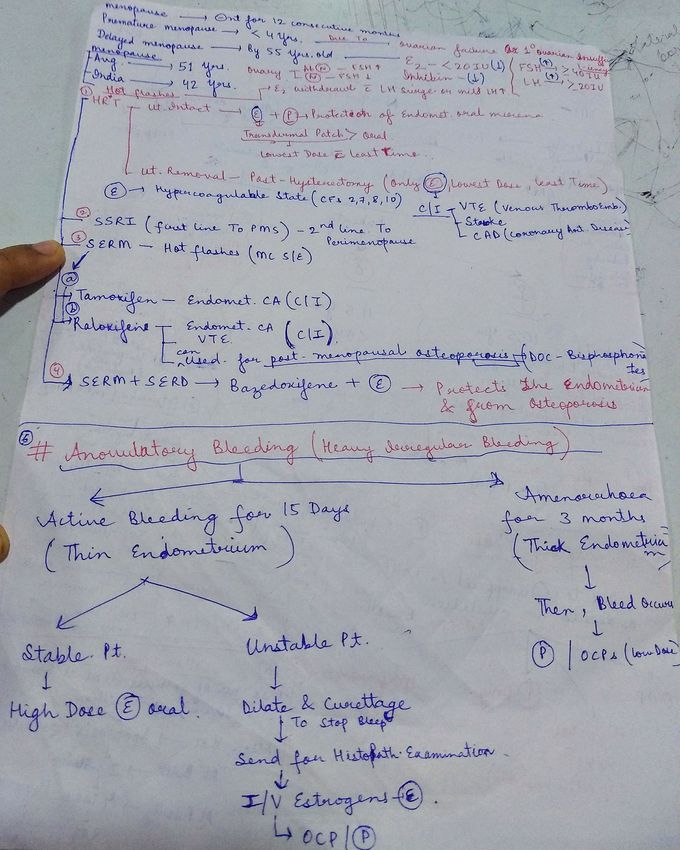 menopause → Ⓞnt for 12 consecutive months
Premature menopause → < 4 Yrs. Due To ovarian failure or 1° ovarian Insuffi
Delayed menopause → By 55 yrs. old
menopause
Avg. → 51 yrs.
India → 42 yrs.
ovary FSH↑
FSH↓
E2 - < 20 IU (↓)
Inhibin - (↓)
FSH (↑) ≥ 40 IU
LH (↑) ≥ 20 IU
① Hot flashes → E2 withdrawl c̄ LH surge or mild LH↑
HRT
ut. Intact → Ⓔ + Ⓟ → Protection of Endomet. oral mirena
Transdermal Patch > oral
Lowest Dose c̄ least Time
ut. Removal – Post-Hysterectomy (only Ⓔ, Lowest Dose, least Time)
Ⓔ → Hypercoagulable State (CFs 2,7,8,10)
C/I
VTE (Venous ThromboEmb.)
Stroke
CAD (coronary Art. Disease)
② SSRI (first line To PMS) – 2nd line To Perimenopause
③ SERM – Hot flashes (MC S/E)
ⓐ
Tamoxifen – Endomet. CA (C/I)
ⓑ
Raloxifene
Endomet. CA
VTE
(C/I)
can
Used. for post-menopausal osteoporosis (DOC - Bisphosphonates
④ SERM + SERD → Bazedoxifene + Ⓔ → Protects The Endometrium
& from Osteoporosis
⑤
# Anovulatory Bleeding (Heavy Irregular Bleeding)
Active Bleeding for 15 Days
(Thin Endometrium)
Amenorrhoea
for 3 months
(Thick Endometrium
↓
Then, Bleed occurs
↓
Ⓟ / OCPs (low Dose)
Stable. Pt.
↓
High Dose Ⓔ oral.
Unstable Pt.
↓
Dilate & Curettage
↓ To Stop Bleep
Send for Histopath. Examination.
↓
I/V Estrogens - Ⓔ.
↳ OCP / Ⓟ